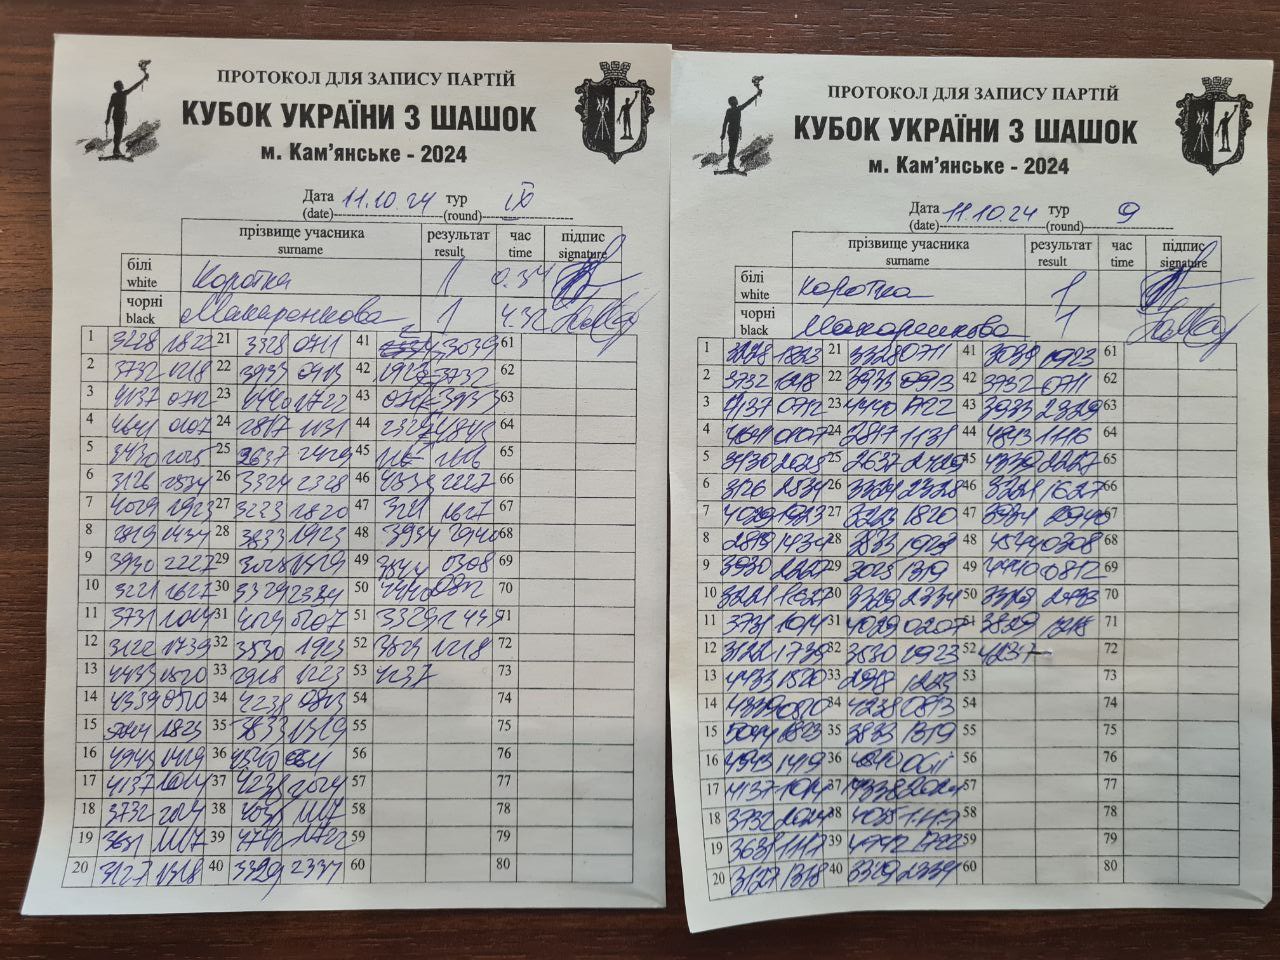 ПРОТОКОЛ ДЛЯ ЗАПИСУ ПАРТІЙ
КУБОК УКРАЇНИ З ШАШОК
м. Кам'янське - 2024
Дата 11.10.24 тур IX
(date) (round)
прізвище учасника результат час підпис
surname result time signature
білі Коротка 1 0.34
white
чорні Макаренкова 1 4.32
black
1 3228 1823 21 3328 0711 41 3039 61
2 3732 1218 22 3933 0913 42 1923 3732 62
3 4137 0712 23 4440 1722 43 0711 3933 63
4 4641 0107 24 2817 1131 44 2329 4843 64
5 3430 2025 25 2637 2429 45 1116 65
6 3126 2534 26 3324 2328 46 4339 2227 66
7 4029 1923 27 3223 1820 47 3221 1627 67
8 2819 1434 28 3833 1923 48 3934 2940 68
9 3930 2227 29 3025 1319 49 4544 0308 69
10 3221 1627 30 3329 2334 50 4440 0812 70
11 3731 1014 31 4029 0207 51 3329 2439 71
12 3122 1739 32 3530 1923 52 3829 1218 72
13 4433 1520 33 2918 1223 53 4237 73
14 4339 0510 34 4238 0813 54 74
15 5044 1823 35 3833 1319 55 75
16 4943 1419 36 4540 0611 56 76
17 4137 1014 37 4238 2024 57 77
18 3732 2014 38 4035 1117 58 78
19 3631 1117 39 4742 1722 59 79
20 3127 1318 40 3329 2334 60 80
ПРОТОКОЛ ДЛЯ ЗАПИСУ ПАРТІЙ
КУБОК УКРАЇНИ З ШАШОК
м. Кам'янське - 2024
Дата 11.10.24 тур 9
(date) (round)
прізвище учасника результат час підпис
surname result time signature
білі Коротка 1
white
чорні Макаренкова 1
black
1 3228 1823 21 3328 0711 41 3038 1923 61
2 3732 1218 22 3933 0913 42 3732 0711 62
3 4137 0712 23 4440 1722 43 3933 2329 63
4 4641 0107 24 2817 1131 44 4843 1116 64
5 3430 2025 25 2637 2429 45 4339 2227 65
6 3126 2534 26 3324 2328 46 3221 1627 66
7 4029 1923 27 3223 1820 47 3934 2940 67
8 2819 1434 28 3833 1923 48 4544 0308 68
9 3930 2227 29 3025 1319 49 4440 0812 69
10 3221 1627 30 3329 2334 50 3329 70
11 3731 1014 31 4029 0207 51 3829 1218 71
12 3122 1739 32 3530 1923 52 4237 72
13 4433 1520 33 2918 1223 53 73
14 4339 0510 34 4238 0813 54 74
15 5044 1823 35 3833 1319 55 75
16 4943 1419 36 4540 0611 56 76
17 4137 1014 37 4338 2024 57 77
18 3732 2014 38 4035 1117 58 78
19 3631 1117 39 4742 1722 59 79
20 3127 1318 40 3329 2334 60 80